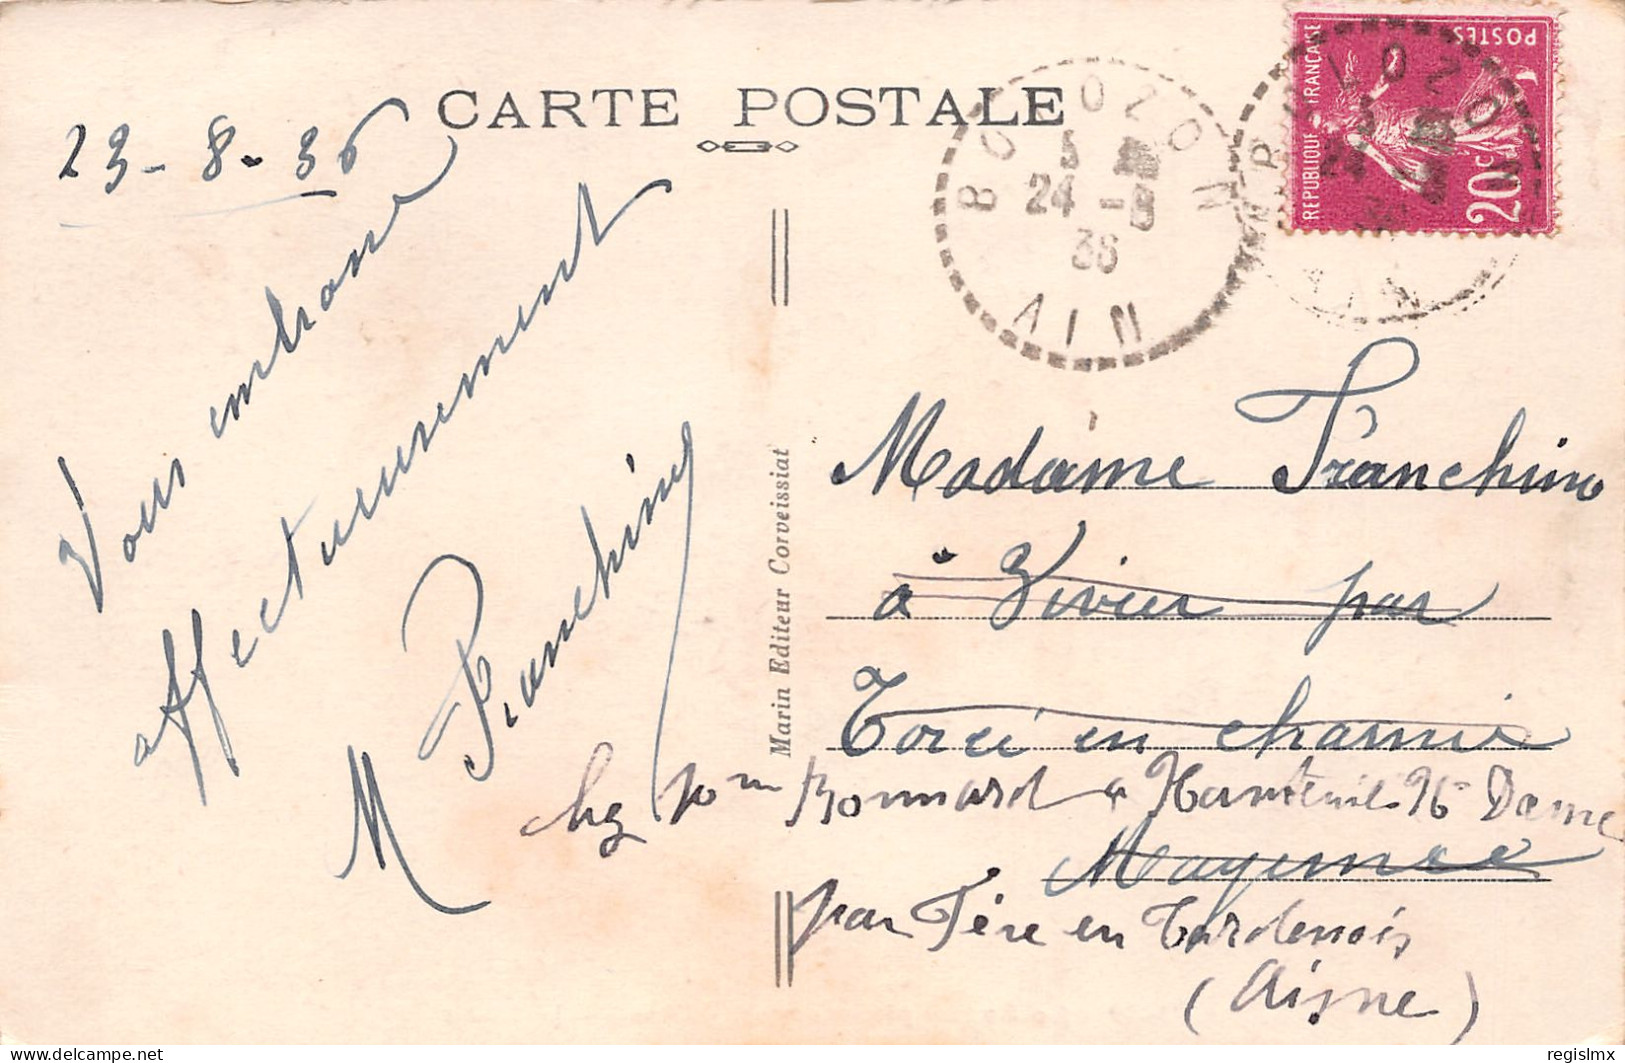 CARTE POSTALE
23-8-36
Vous embrasse
affectueusement
M Franchino
Marin Editeur Corveissiat
BOLOZON
5
24 -8
36
AIN
REPUBLIQUE FRANCAISE
POSTES
20c
Madame Franchino
à Vivier par
Torcé en charnie
Mayenne
chez Mme Bonnard à Nanteuil Nte Dame
par Fère en Tardenois
(Aisne)
delcampe.net
regislmx